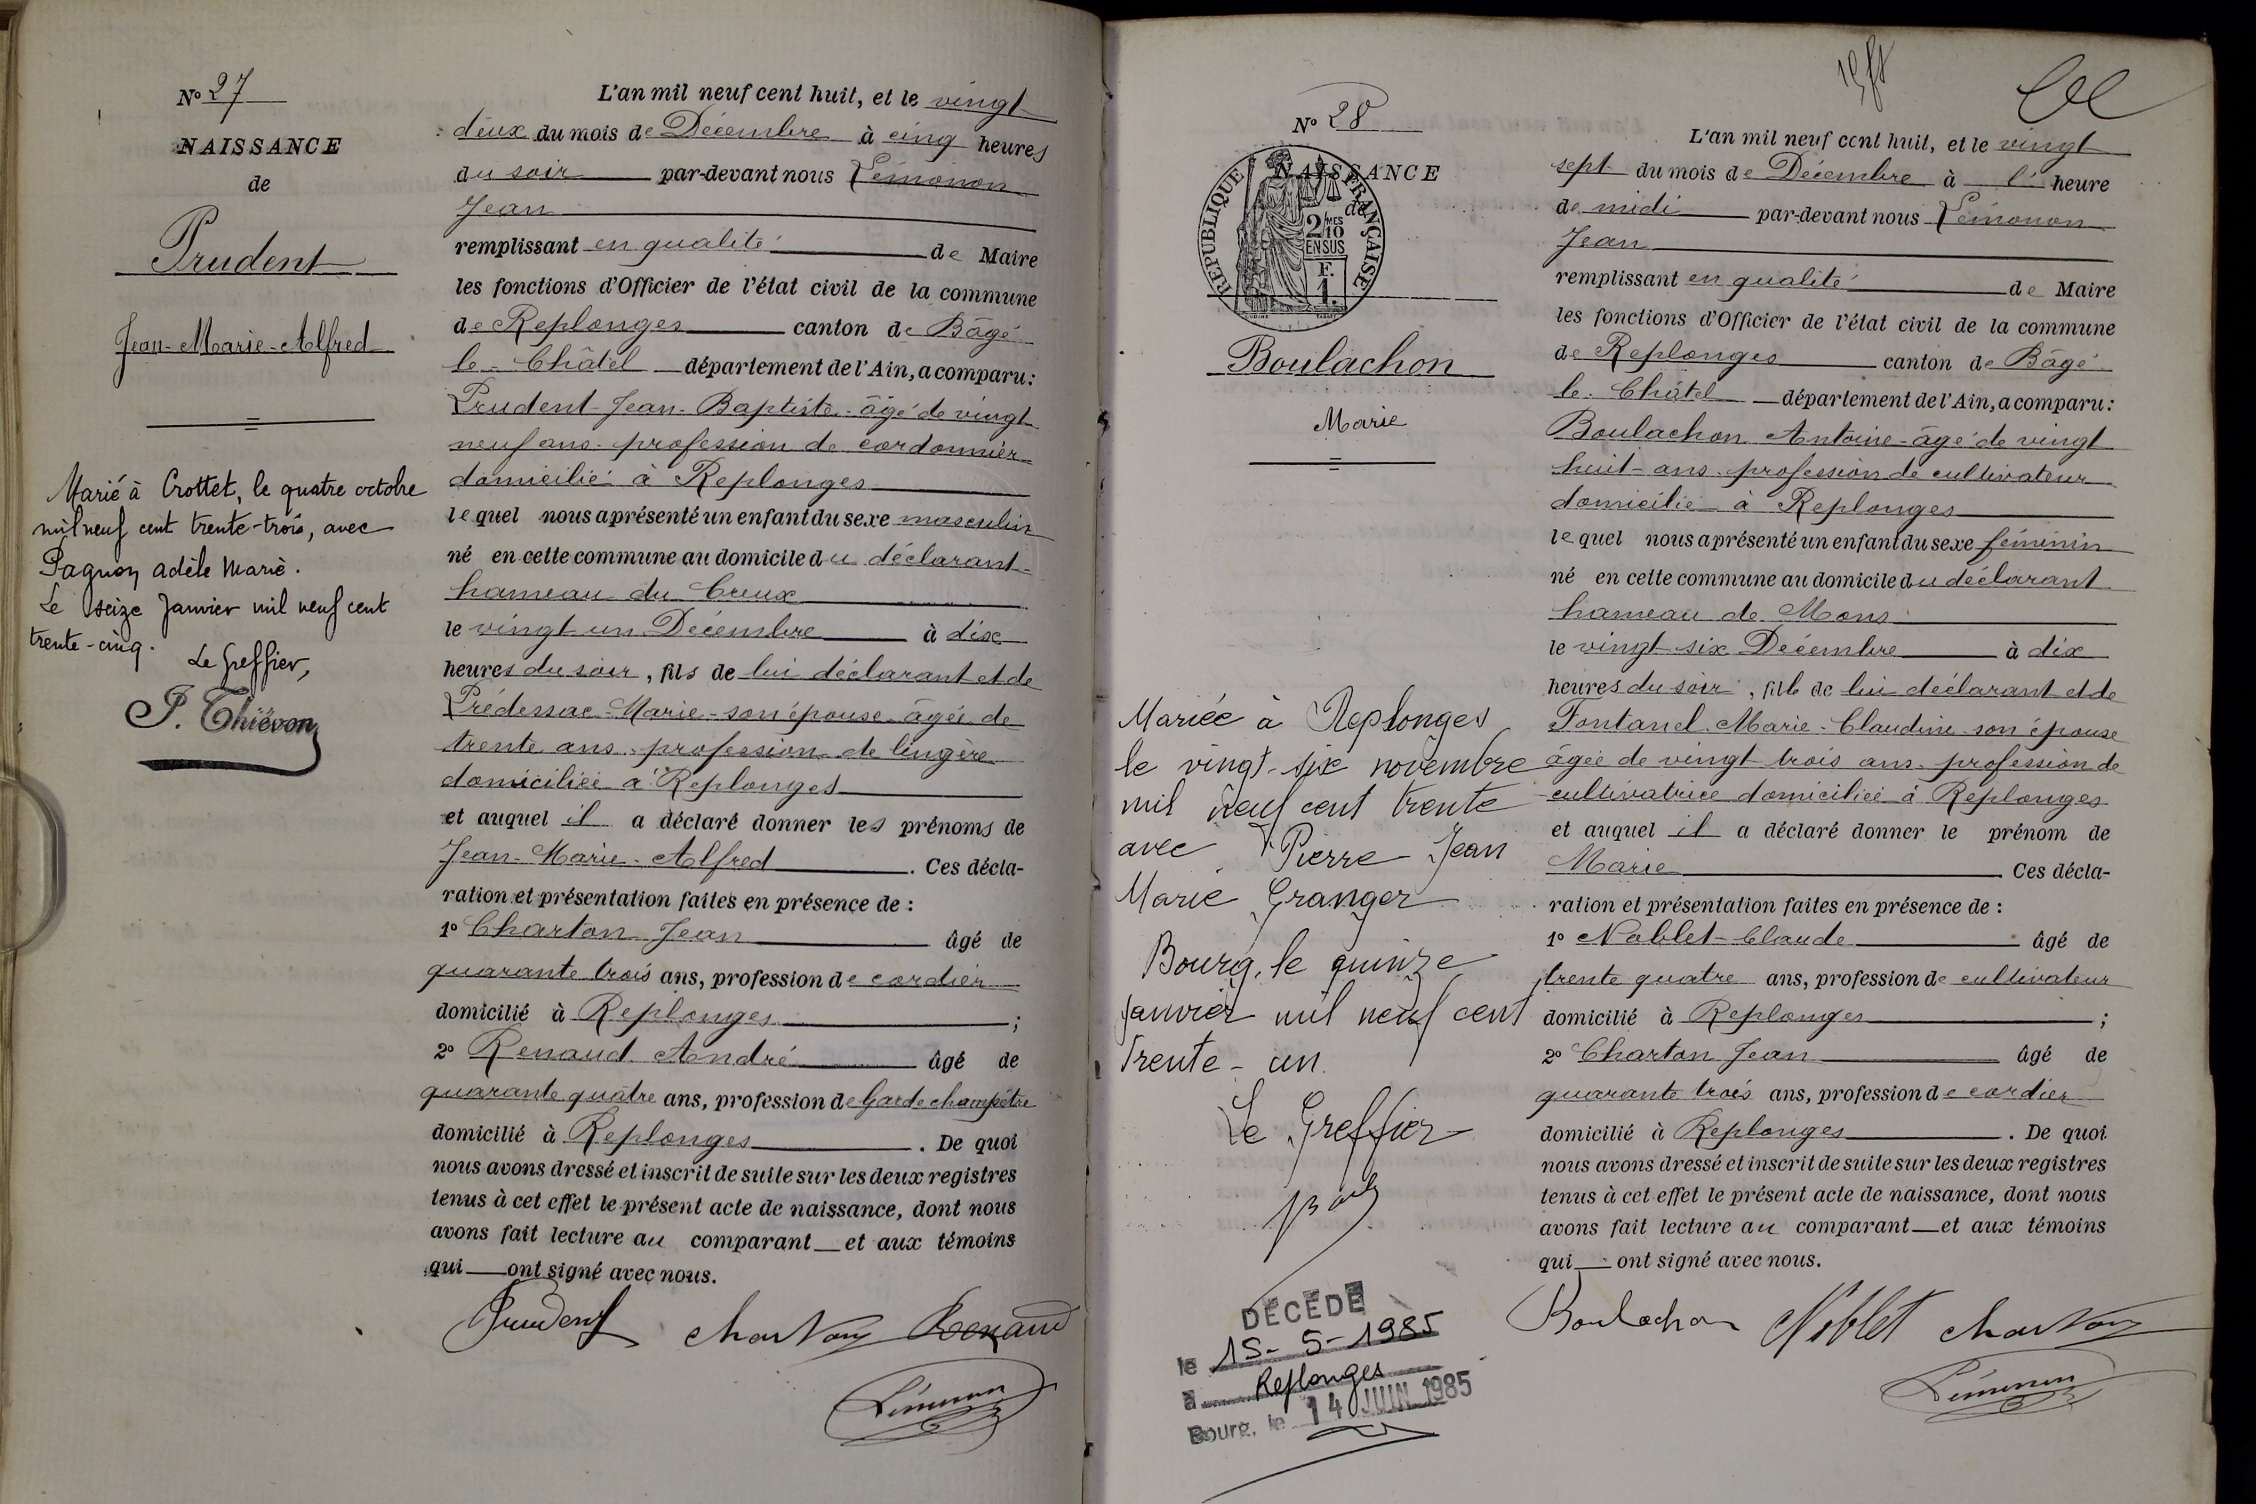 N° 27
NAISSANCE
de
Prudent
Jean-Marie-Alfred
Marié à Crottet, le quatre octobre
mil neuf cent trente-trois, avec
Pagnon Adèle Marie.
Le seize Janvier mil neuf cent
trente-cinq.
Le Greffier,
P. Thiévon
L'an mil neuf cent huit, et le vingt
deux du mois de Décembre à cinq heures
du soir par-devant nous Lémonon
Jean
remplissant en qualité de Maire
les fonctions d'Officier de l'état civil de la commune
de Replonges canton de Bâgé
le-Châtel département de l'Ain, a comparu:
Prudent-Jean-Baptiste-âgé de vingt
neuf ans-profession de cordonnier
domicilié à Replonges
lequel nous a présenté un enfant du sexe masculin
né en cette commune au domicile du déclarant
hameau du Creux
le vingt un Décembre à dix
heures du soir, fils de lui déclarant et de
Prédessac-Marie-son épouse-âgée de
trente ans-profession de lingère
domiciliée à Replonges
et auquel il a déclaré donner les prénoms de
Jean-Marie-Alfred. Ces décla-
ration et présentation faites en présence de :
1° Charton Jean âgé de
quarante trois ans, profession de cordier
domicilié à Replonges ;
2° Renaud André âgé de
quarante quatre ans, profession de Garde champêtre
domicilié à Replonges. De quoi
nous avons dressé et inscrit de suite sur les deux registres
tenus à cet effet le présent acte de naissance, dont nous
avons fait lecture au comparant et aux témoins
qui ont signé avec nous.
Prudent Charton Renaud
Lémonon
N° 28
NAISSANCE
de
RÉPUBLIQUE FRANÇAISE
2/10MES
EN SUS
F.
1.
Boulachon
Marie
Mariée à Replonges
le vingt-six novembre
mil neuf cent trente
avec Pierre Jean
Marie Granger
Bourg, le quinze
janvier mil neuf cent
trente-un
Le Greffier
DÉCÉDÉ
le 15-5-1985
à Replonges
Bourg, le 14 JUIN 1985
L'an mil neuf cent huit, et le vingt
sept du mois de Décembre à l' heure
de midi par-devant nous Lémonon
Jean
remplissant en qualité de Maire
les fonctions d'Officier de l'état civil de la commune
de Replonges canton de Bâgé
le-Châtel département de l'Ain, a comparu:
Boulachon Antoine-âgé de vingt
huit-ans-profession de cultivateur
domicilié à Replonges
lequel nous a présenté un enfant du sexe féminin
né en cette commune au domicile du déclarant
hameau de Mons
le vingt six Décembre à dix
heures du soir, fille de lui déclarant et de
Fontanel-Marie-Claudine-son épouse
âgée de vingt trois ans-profession de
cultivatrice domiciliée à Replonges
et auquel il a déclaré donner le prénom de
Marie. Ces décla-
ration et présentation faites en présence de :
1° Noblet-Claude âgé de
trente quatre ans, profession de cultivateur
domicilié à Replonges ;
2° Charton Jean âgé de
quarante trois ans, profession de cordier
domicilié à Replonges. De quoi
nous avons dressé et inscrit de suite sur les deux registres
tenus à cet effet le présent acte de naissance, dont nous
avons fait lecture au comparant et aux témoins
qui ont signé avec nous.
Boulachon Noblet Charton
Lémonon